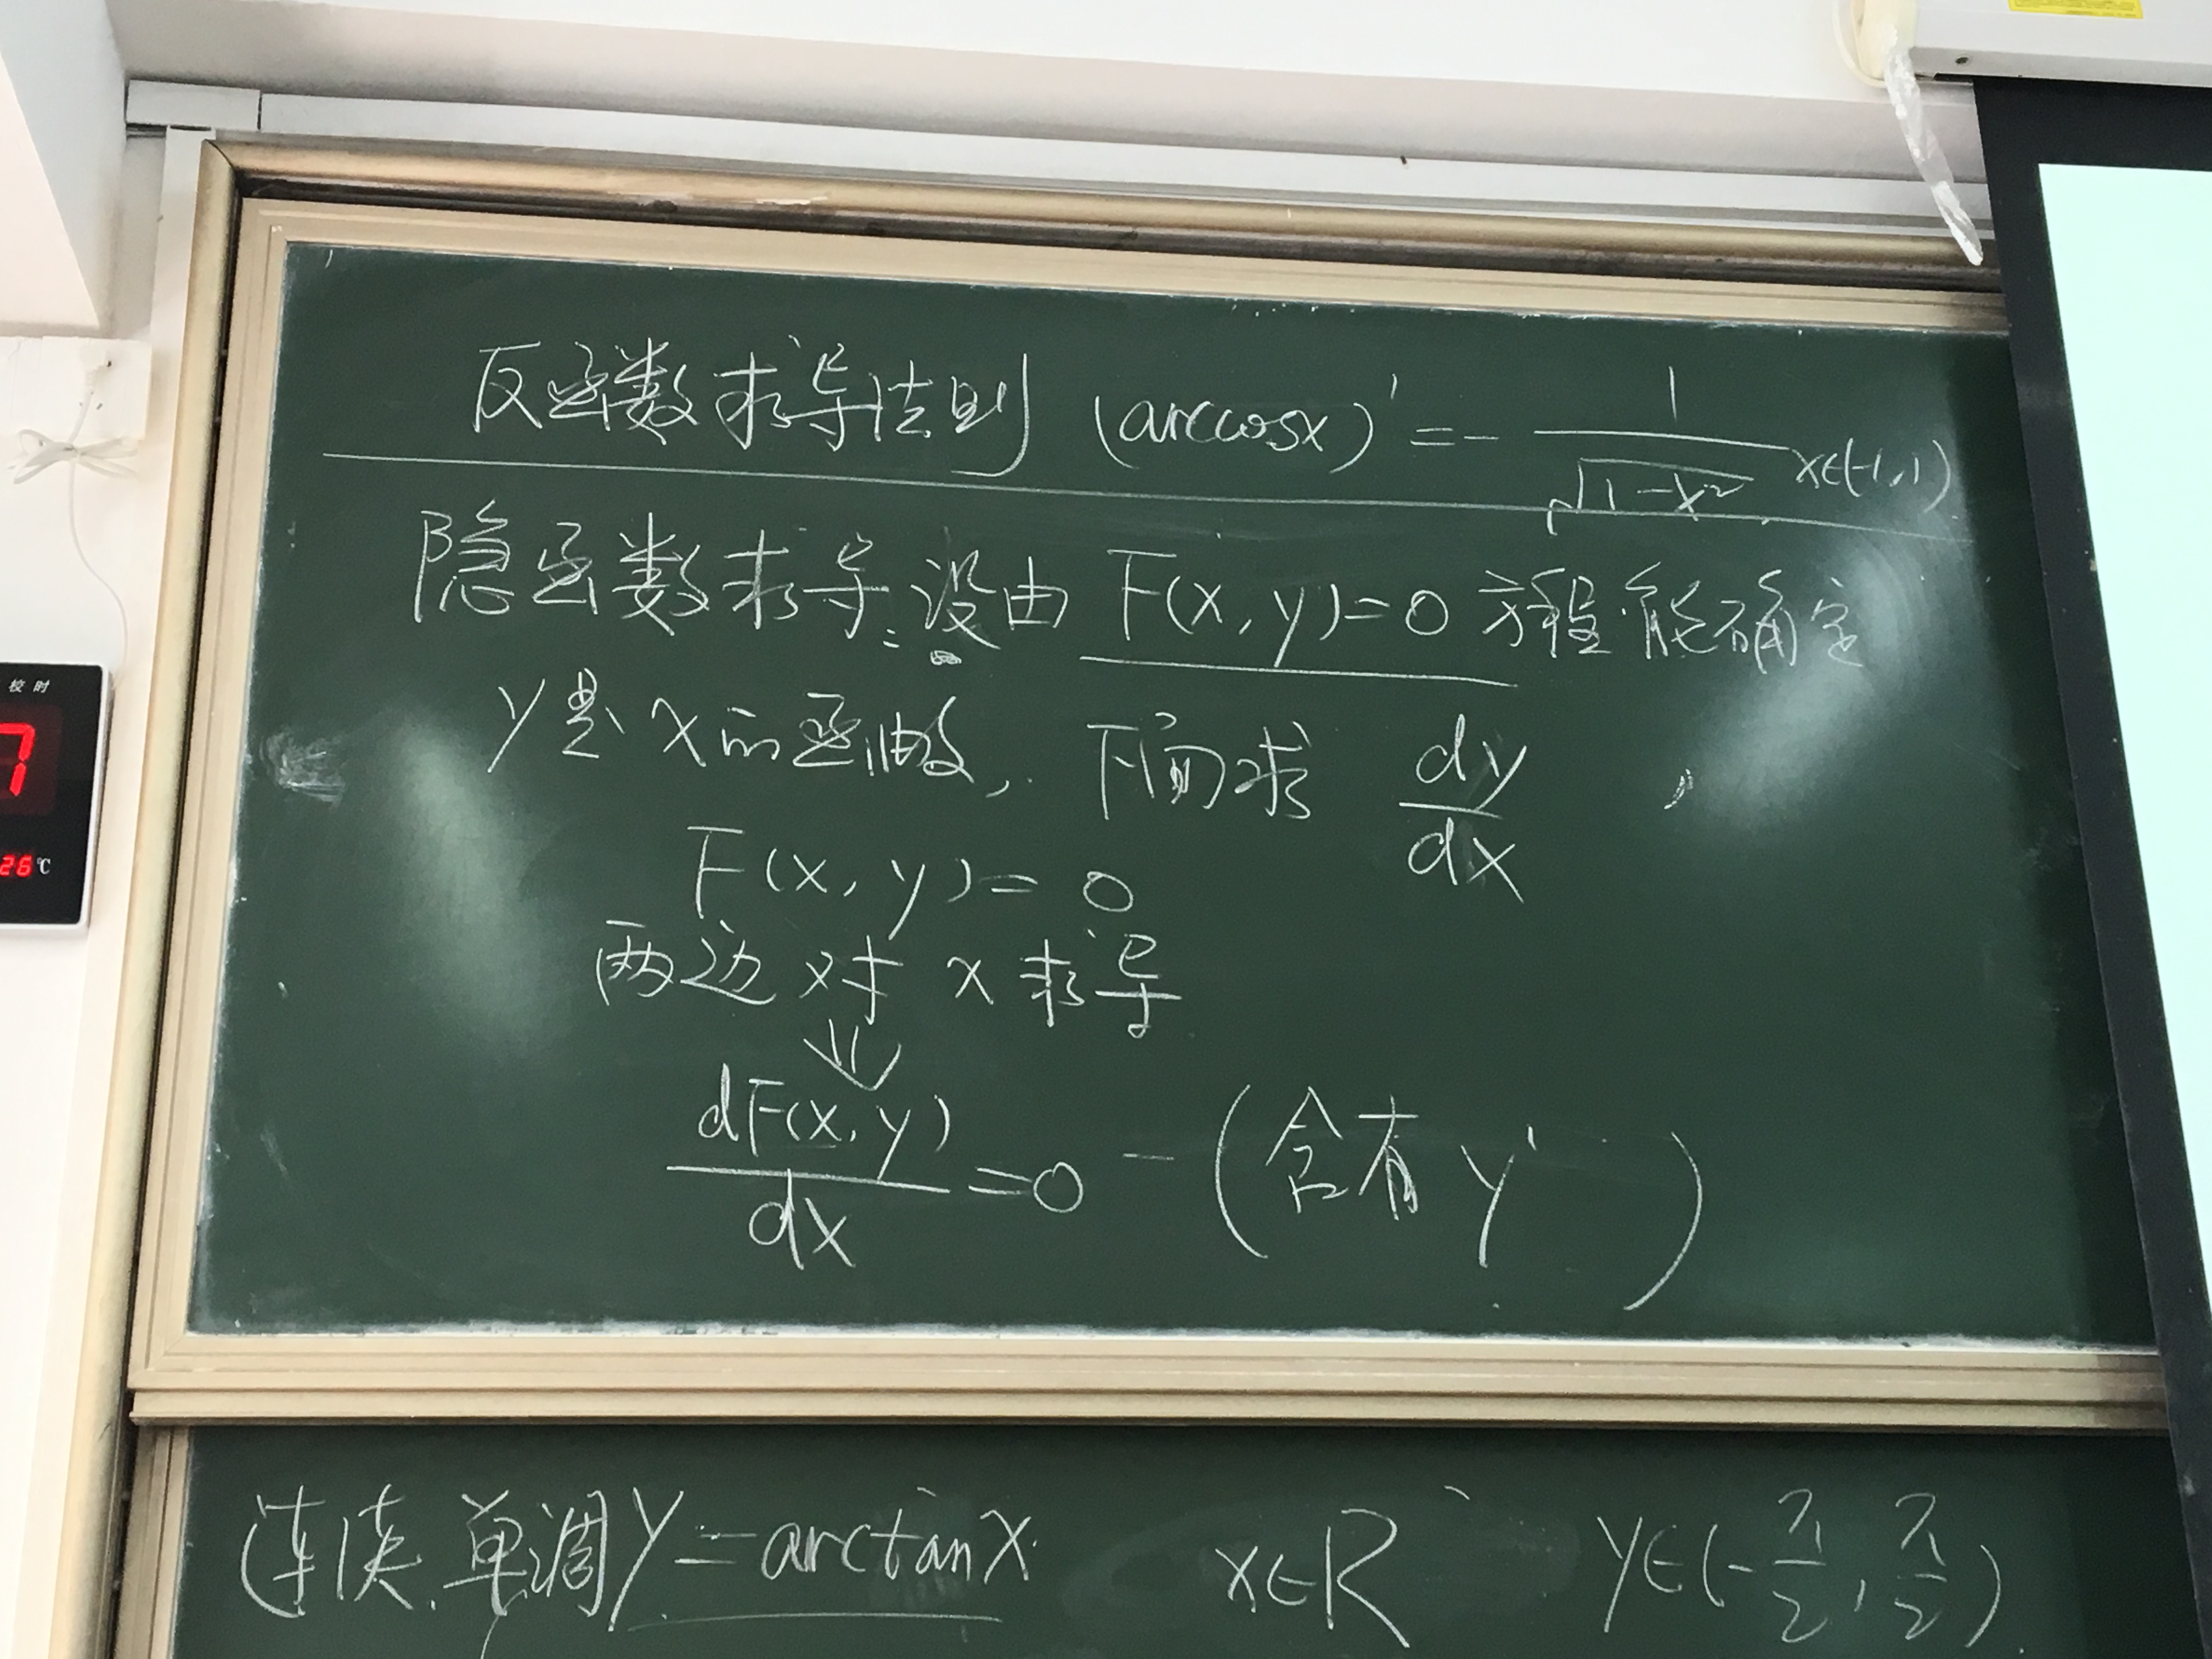 反函数求导法则 (arccosx)' = - 1/√(1-x²) x∈(-1,1)
隐函数求导:设由 F(x,y)=0 方程能确定
y是x的函数, 下面求 dy/dx,
F(x,y)=0
两边对x求导
⇓
dF(x,y)/dx =0 - (含有y')
连续.单调y=arctanx. x∈R y∈(-π/2,π/2)
校时
7
26℃